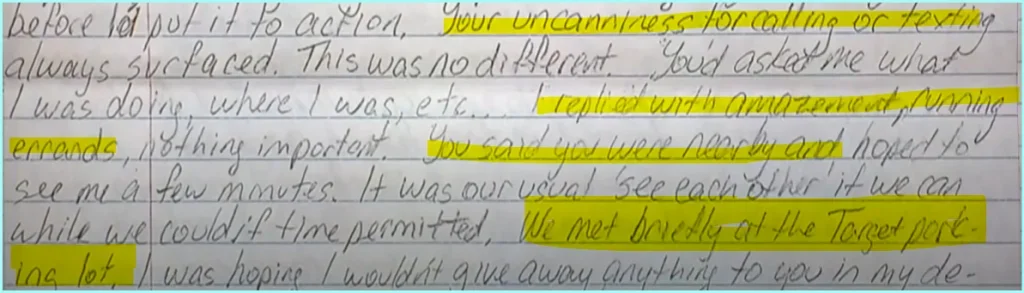 before I'd put it to action. Your uncanniness for calling or texting
always surfaced. This was no different. You'd asked me what
I was doing, where I was, etc... I replied with amazement, running
errands, nothing important. You said you were nearby and hoped to
see me a few minutes. It was our usual 'see each other' if we can
while we could if time permitted. We met briefly at the Target park-
ing lot. I was hoping I wouldn't give away anything to you in my de-